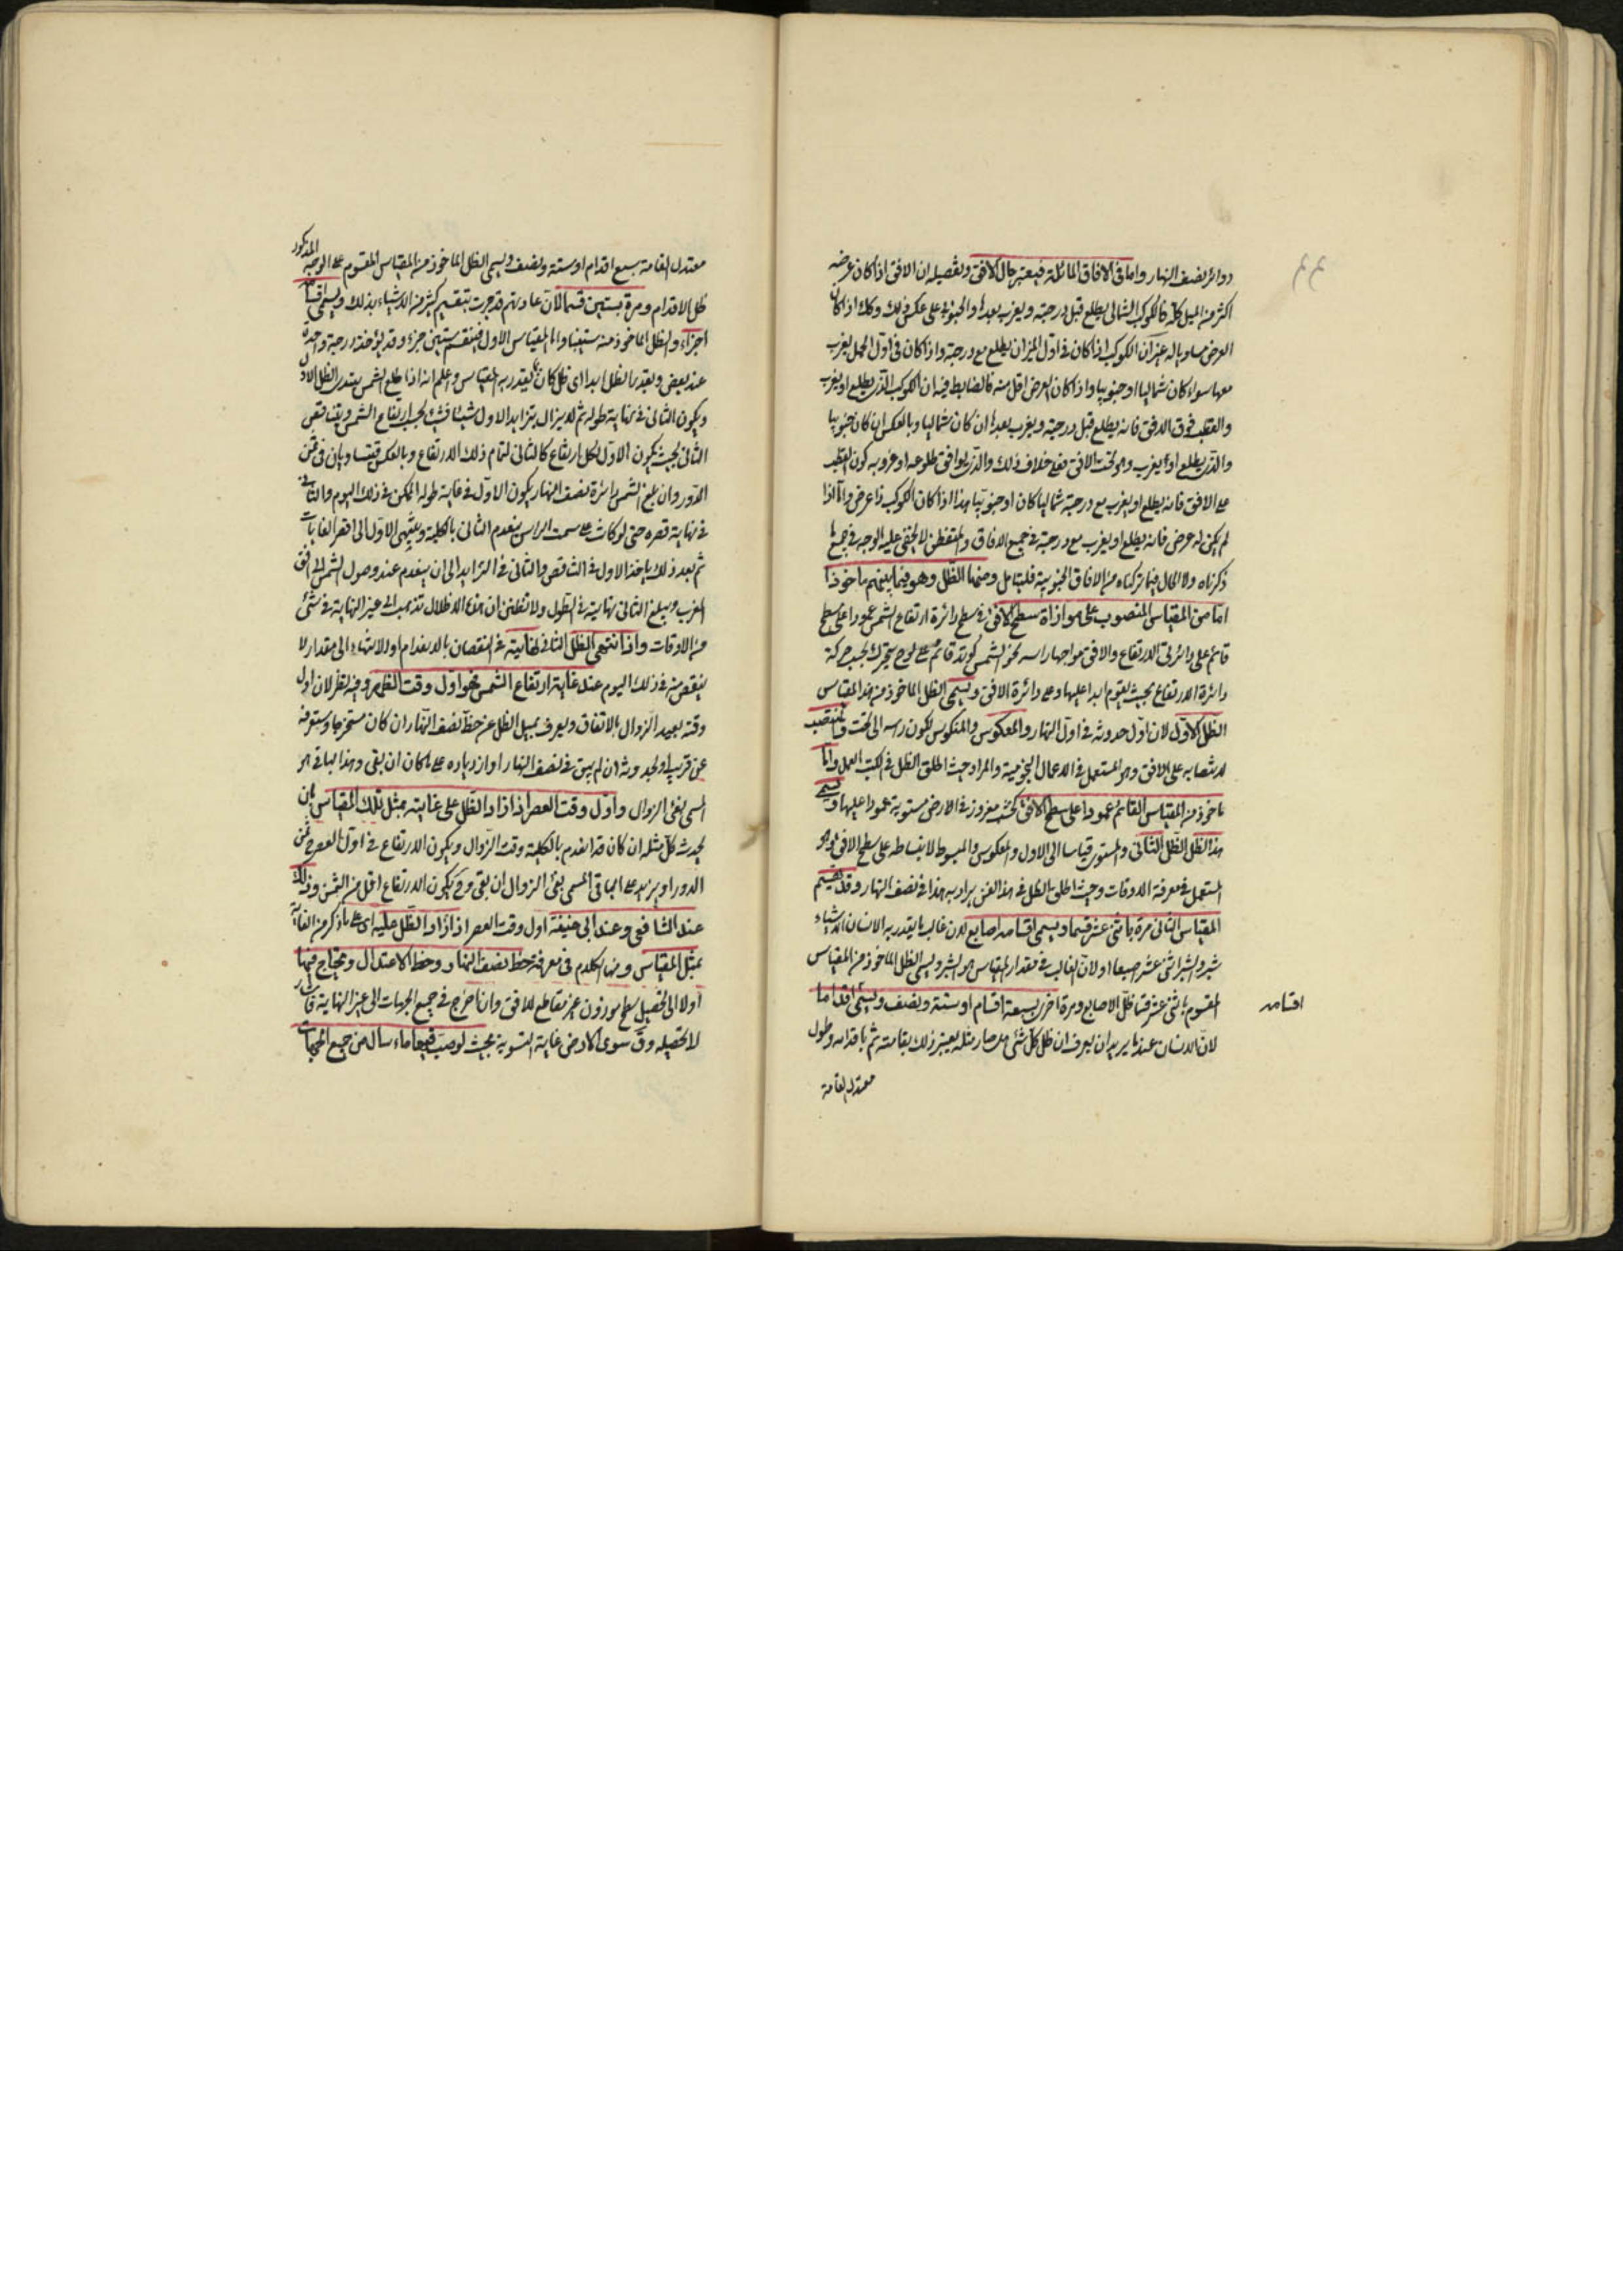 دوائر نصف النهار واما فى الافاق المائلة فيعتبر حال الافق وتفصيله ان الافق اذا كان عرضه
اكثر من الميل كله فالكوكب الشمالى يطلع قبل درجته ويغرب بعدها والجنوبى على عكس ذلك وكذا اذا كان
العرض مساويا له غير ان الكوكب اذا كان فى اول الميزان يطلع مع درجته واذا كان فى اول الحمل يغرب
معها سواء كان شماليا او جنوبيا واذا كان العرض اقل منه فالضابط فيه ان الكوكب الذى يطلع او يغرب
والقطب فوق الافق فانه يطلع قبل درجته ويغرب بعدها ان كان شماليا وبالعكس ان كان جنوبيا
والذى يطلع او يغرب وهو تحت الافق فعلى خلاف ذلك والذى يوافق طلوعه او غروبه كون القطب
على الافق فانه يطلع او يغرب مع درجته شماليا كان او جنوبيا هذا اذا كان الكوكب ذا عرض واما اذا
لم يكن له عرض فانه يطلع او يغرب مع درجته فى جميع الافاق والمتفطن لا يخفى عليه الوجه فى جميع ما
ذكرناه ولا الحال فيما تركناه من الافاق الجنوبية فليتأمل ومنها الظل وهو فيما بينهم ماخوذ
اما من المقياس المنصوب على موازاة سطح الافق فى سطح دائرة ارتفاع الشمس عمودا على سطح
قائم على دائرتى الارتفاع والافق مواجها راسه نحو الشمس كوتد قائم على لوح يتحرك بحسب حركة
دائرة الارتفاع بحيث يقوم ابدا عليها وعلى دائرة الافق ويسمى الظل الماخوذ من هذا المقياس
الظل الاول لان اول حدوثه فى اول النهار والمعكوس والمنكوس لكون راسه الى تحت والمنتصب
لانتصابه على الافق وهو المستعمل فى الاعمال النجومية والمراد حيث اطلق الظل فى الكتب العمل واما
ماخوذ من المقياس القائم عمودا على سطح الافق كخشب مغروز فى الارض مستوية عمودا عليها ويسمى
هذا الظل الظل الثانى والمستوى قياسا الى الاول والمعكوس والمبسوط لانبساطه على سطح الافق وهو
المستعمل فى معرفة الاوقات وحيث اطلق الظل فى هذا الفن يراد به هذا فى نصف النهار وقد يقسم
المقياس الثانى مرة باثنى عشر قسما ويسمى اقسامه اصابع لان غالب ما يقدر به الانسان الاشياء
شبر والشبر اثنى عشر اصبعا او لان الغالب فى مقدار المقياس هو الشبر ويسمى الظل الماخوذ من المقياس
المقسوم باثنى عشر قسما ظل الاصابع ومرة اخرى بسبعة اقسام او ستة ونصف ويسمى اقداما
اقسامه
لان الانسان عندما يريد ان يعرف ان ظل كل شئ هل صار مثله يعتبر ذلك بقامته ثم باقدامه وطول
معتدل القامة
المذكور
معتدل القامة سبع اقدام او ستة ونصف ويسمى الظل الماخوذ من المقياس المقسوم على الوجه
ظل الاقدام ومرة بستين قسما لان عادتهم قد جرت بتقسيم كثير من الاشياء بذلك ويسمى اقسامه
اجزاء والظل الماخوذ منه ستينيا واما المقياس الاول فينقسم بستين جزء وقد يؤخذ درجة واحدة
عند بعض ويقدر الظل ابدا اى ظل كان بما يقدر به المقياس واعلم انه اذا طلع الشمس يبتدى الظل الاول
ويكون الثانى فى نهاية طوله ثم لا يزال يتزايد الاول شيئا فشيئا بحسب ارتفاع الشمس ويتناقص
الثانى بحيث يكون الاول لكل ارتفاع كالثانى لتمام ذلك الارتفاع وبالعكس فيتساويان فى ثمن
الدور وان بلغ الشمس دائرة نصف النهار يكون الاول فى غاية طوله الممكن فى ذلك اليوم والثانى
فى نهاية قصره حتى لو كانت على سمت الراس ينعدم الثانى بالكلية وينتهى الاول الى اقصر الغايات
ثم بعد ذلك ياخذ الاول فى التناقص والثانى فى التزايد الى ان ينعدم عند وصول الشمس الى افق
المغرب ويبلغ الثانى نهايته فى الطول ولا تظنن ان هذه الاظلال تذهب الى غير النهاية فى شئ
من الاوقات واذا انتهى الظل الثانى نهايته فى النقصان بالانعدام او لانتهاء الى مقدار لا
ينقص منه فى ذلك اليوم عند غاية ارتفاع الشمس فهو اول وقت الظهر وفيه نظر لان اول
وقته بعيد الزوال بالاتفاق ويعرف بميل الظل عن خط نصف النهار ان كان مستخرجا وستعرفه
عن قريب او بحدوثه ان لم يبق فى نصف النهار او ازدياده على ما كان ان بقى وهذا الباقى هو
المسمى بفئ الزوال واول وقت العصر اذا زاد الظل على غايته بمثل ذلك المقياس بان
يحدث كل مثله ان كان قد انعدم بالكلية وقت الزوال ويكون الارتفاع فى اول العصر ثمن
الدور او يزيد على الباقى المسمى بفئ الزوال ان بقى وح يكون الارتفاع اقل من الثمن وذلك
عند الشافعى وعند ابى حنيفة اول وقت العصر اذا زاد الظل عليه اى على ما ذكر من الغاية
بمثلى المقياس ومنها الكلام فى معرفة خط نصف النهار وخط الاعتدال ونحتاج فيها
اولا الى تحصيل سطح موزون غير مقاطع للافق وان اخرج فى جميع الجهات الى غير النهاية فاشار
لا تحصيله وق سوى الارض غاية التسوية بحيث لو صب فيها ماء سال من جميع الجهات